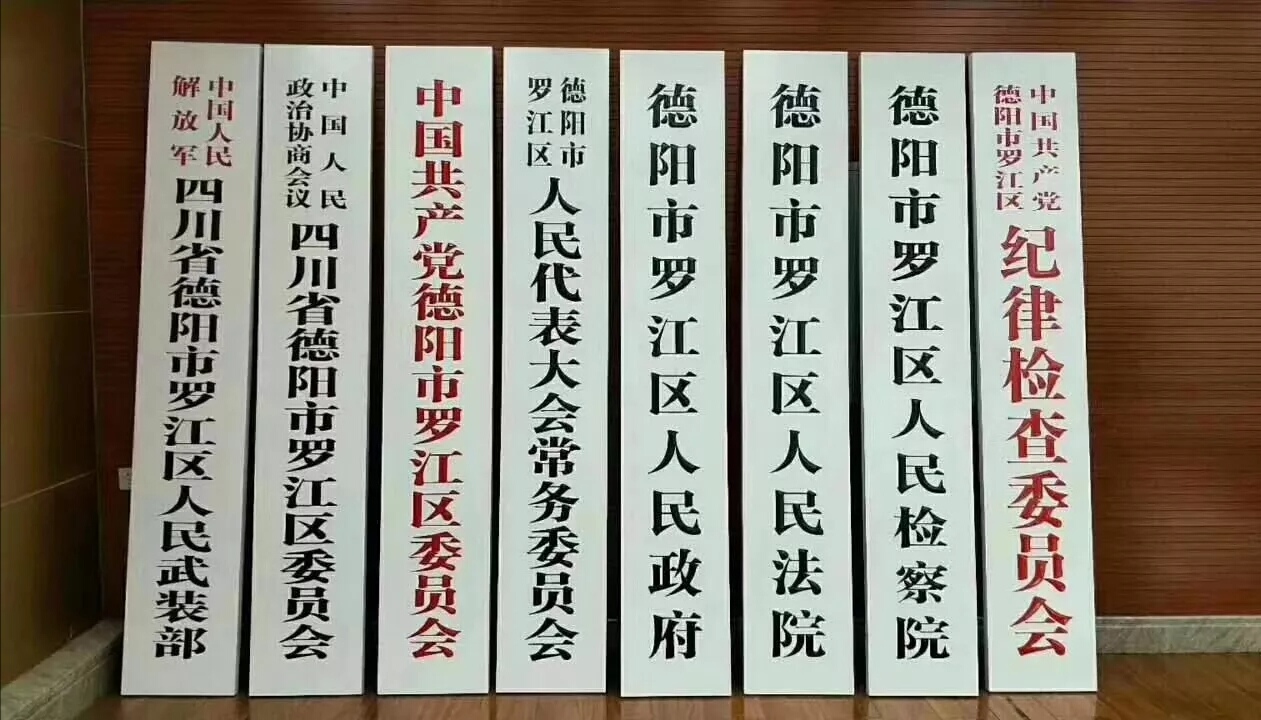 中国人民解放军四川省德阳市罗江区人民武装部
中国人民政治协商会议四川省德阳市罗江区委员会
中国共产党德阳市罗江区委员会
德阳市罗江区人民代表大会常务委员会
德阳市罗江区人民政府
德阳市罗江区人民法院
德阳市罗江区人民检察院
中国共产党德阳市罗江区纪律检查委员会